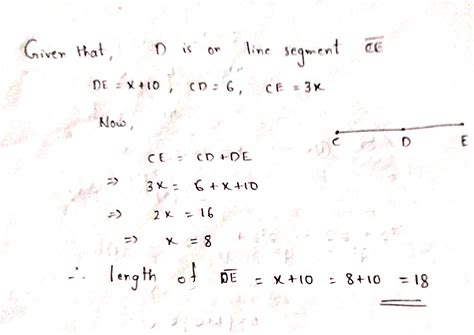 Given that, D is on line segment C̅E̅
DE = x+10, CD = 6, CE = 3x
Now,
C D E
CE = CD+DE
⇒ 3x = 6+x+10
⇒ 2x = 16
⇒ x = 8
∴ length of D̅E̅ = x+10 = 8+10 = 18